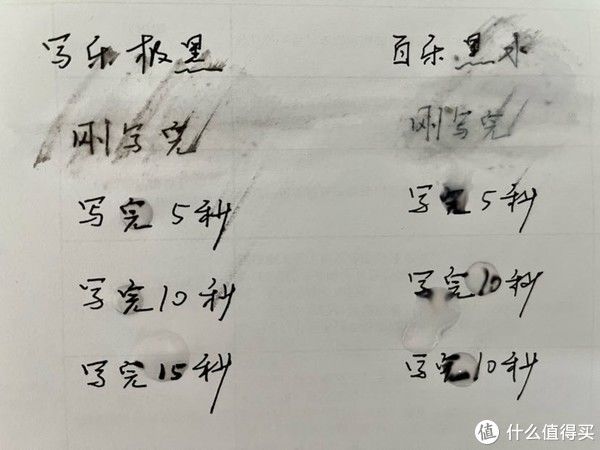 写乐极黑
刚写完
写完5秒
写完10秒
写完15秒
百乐黑水
刚写完
写完5秒
写完10秒
写完10秒
值 什么值得买